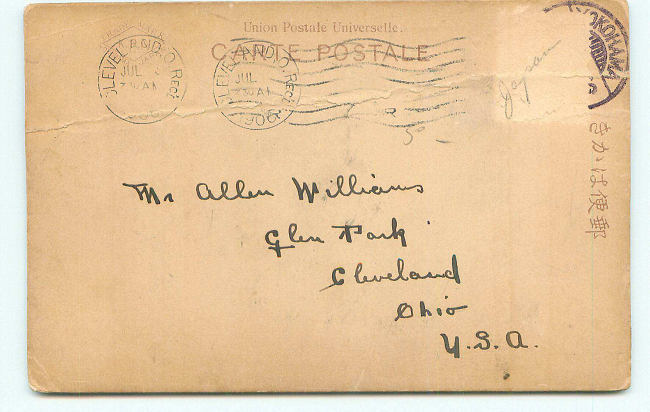 Union Postale Universelle.
CARTE POSTALE
CLEVELAND, O.
JUL
7 30 AM
REC'D.
CLEVELAND, O.
JUL
AM
1906
REC'D.
YOKOHAMA
Japan
きかは便郵
Mr Allen Williams
Glen Park
Cleveland
Ohio
U.S.A.